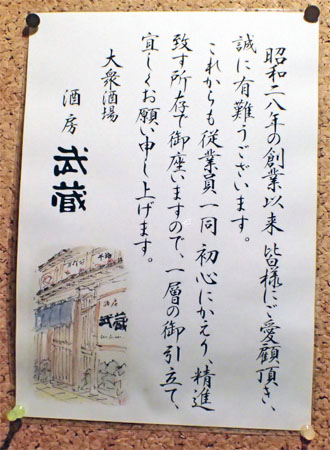 昭和二八年の創業以来 皆様にご愛顧頂き、
誠に有難うございます。
これからも従業員一同 初心にかえり、精進
致す所存で御座いますので、一層の御引立て、
宜しくお願い申し上げます。
大衆酒場
酒房
武蔵
酒房
武蔵